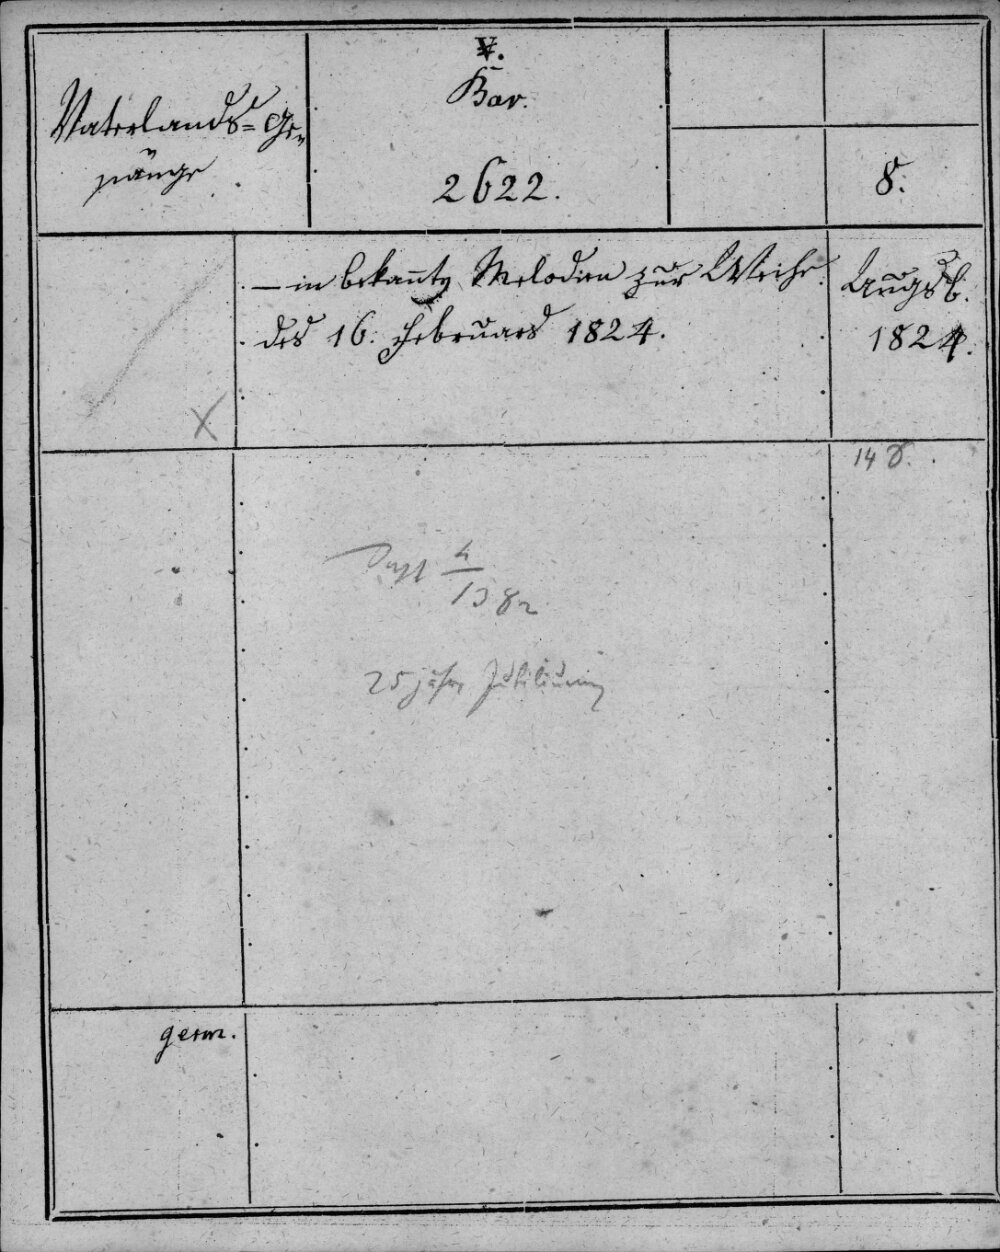 Vaterlands=Ge-
sänge
Bav.
2622.
8.
— in bekannten Melodien zur Weihe
des 16. Februars 1824.
Augsb.
1824.
14 S.
1382
25 jähr. Jubiläum
germ.